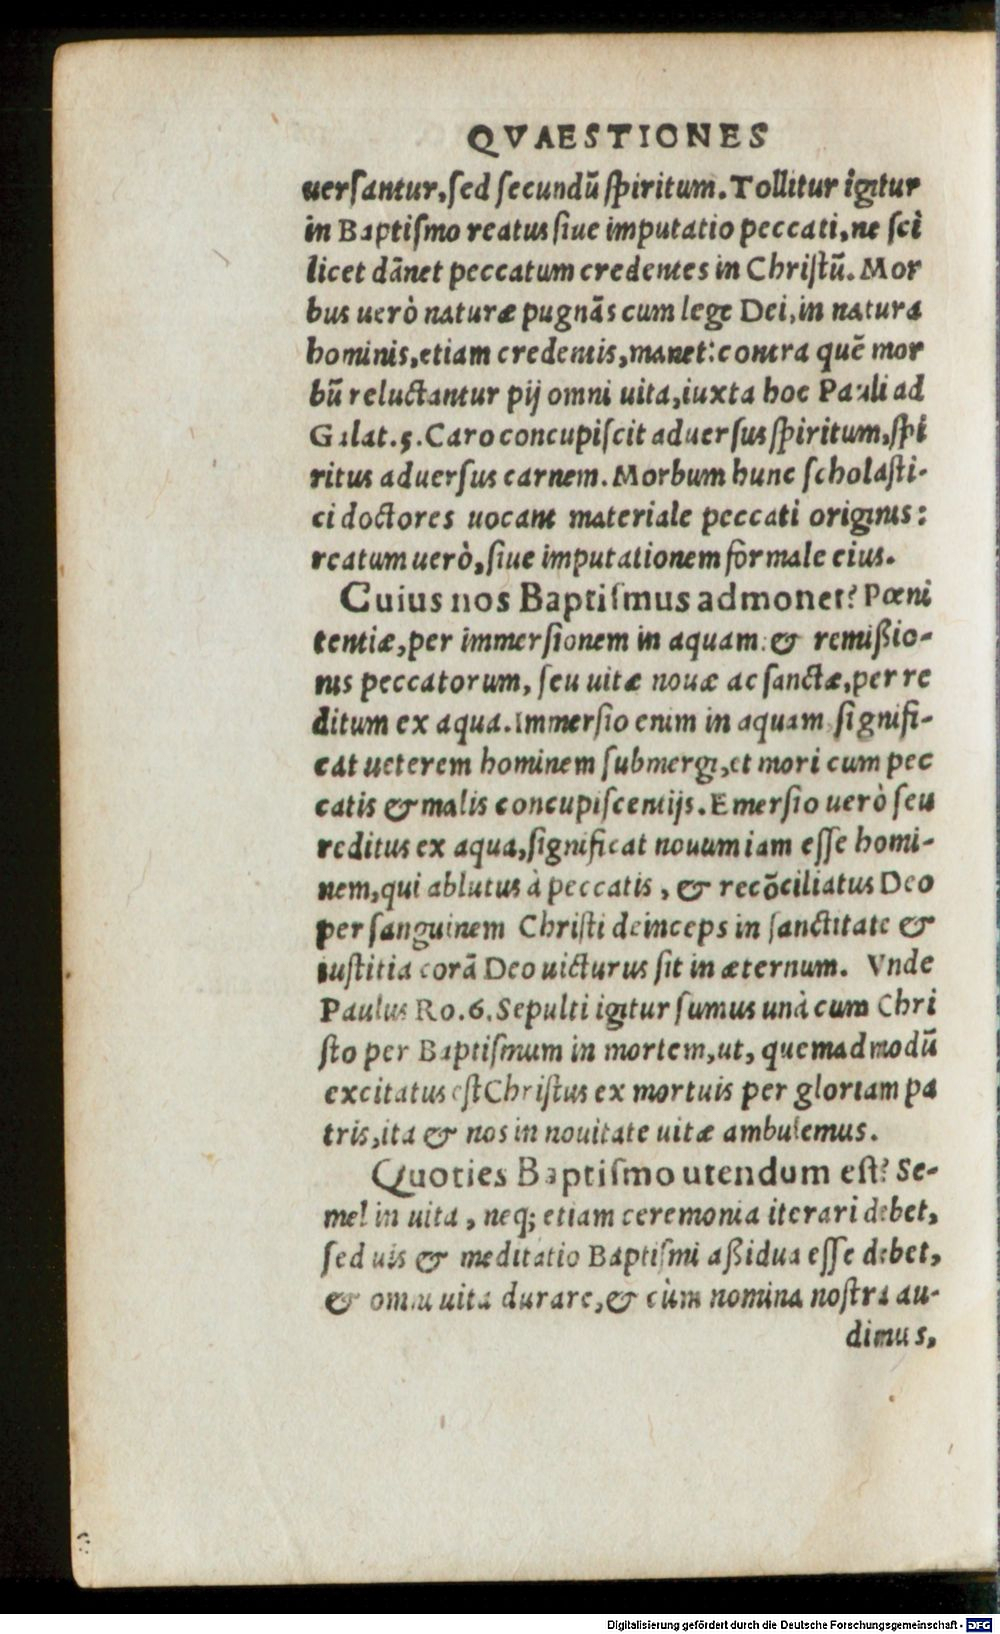 QVAESTIONES
uerſantur, ſed ſecundũ ſpiritum. Tollitur igitur
in Baptiſmo reatus ſiue imputatio peccati, ne ſci
licet dãnet peccatum credentes in Chriſtũ. Mor
bus uerò naturæ pugnãs cum lege Dei, in natura
hominis, etiam credentis, manet: contra quẽ mor
bũ reluctantur pij omni uita, iuxta hoc Pauli ad
Galat. 5. Caro concupiſcit aduerſus ſpiritum, ſpi
ritus aduerſus carnem. Morbum hunc ſcholaſti-
ci doctores uocant materiale peccati originis:
reatum uerò, ſiue imputationem formale eius.
Cuius nos Baptiſmus admonet? Pœni
tentiæ, per immerſionem in aquam: & remißio-
nis peccatorum, ſeu uitæ nouæ ac ſanctæ, per re
ditum ex aqua. Immerſio enim in aquam ſignifi-
cat ueterem hominem ſubmergi, et mori cum pec
catis & malis concupiſcentijs. Emerſio uerò ſeu
reditus ex aqua, ſignificat nouum iam eſſe homi-
nem, qui ablutus à peccatis, & recõciliatus Deo
per ſanguinem Chriſti deinceps in ſanctitate &
iuſtitia corã Deo uicturus ſit in æternum. Vnde
Paulus Ro. 6. Sepulti igitur ſumus unà cum Chri
ſto per Baptiſmum in mortem, ut, quemadmodũ
excitatus eſt Chriſtus ex mortuis per gloriam pa
tris, ita & nos in nouitate uitæ ambulemus.
Quoties Baptiſmo utendum eſt? Se-
mel in uita, neq; etiam ceremonia iterari debet,
ſed uis & meditatio Baptiſmi aßidua eſſe debet,
& omni uita durare, & cùm nomina noſtra au-
dimus,
Digitalisierung gefördert durch die Deutsche Forschungsgemeinschaft - DFG